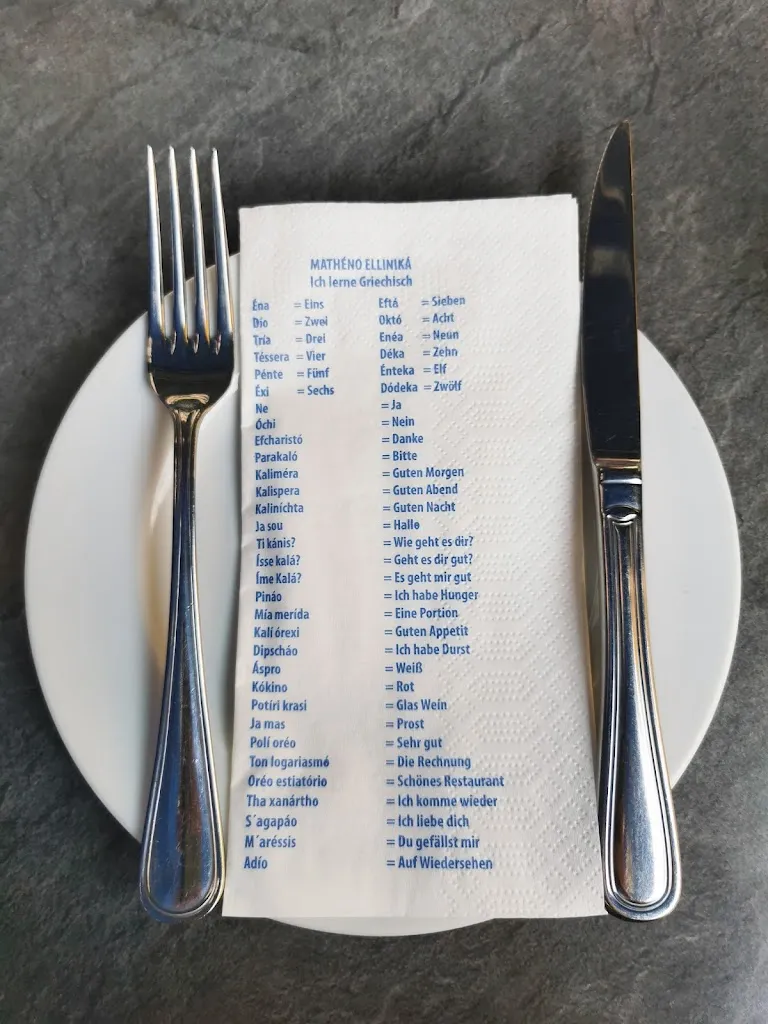 MATHÉNO ELLINIKÁ
Ich lerne Griechisch
Éna = Eins Eftá = Sieben
Dío = Zwei Októ = Acht
Tría = Drei Enéa = Neun
Téssera = Vier Déka = Zehn
Pénte = Fünf Énteka = Elf
Éxi = Sechs Dódeka = Zwölf
Ne = Ja
Óchi = Nein
Efcharistó = Danke
Parakaló = Bitte
Kaliméra = Guten Morgen
Kalispera = Guten Abend
Kaliníchta = Guten Nacht
Ja sou = Hallo
Ti kánis? = Wie geht es dir?
Ísse kalá? = Geht es dir gut?
Íme Kalá? = Es geht mir gut
Pináo = Ich habe Hunger
Mía merída = Eine Portion
Kalí órexi = Guten Appetit
Dipscháo = Ich habe Durst
Áspro = Weiß
Kókino = Rot
Potíri krasi = Glas Wein
Ja mas = Prost
Polí oréo = Sehr gut
Ton logariasmó = Die Rechnung
Oréo estiatório = Schönes Restaurant
Tha xanártho = Ich komme wieder
S´agapáo = Ich liebe dich
M´aréssis = Du gefällst mir
Adío = Auf Wiedersehen